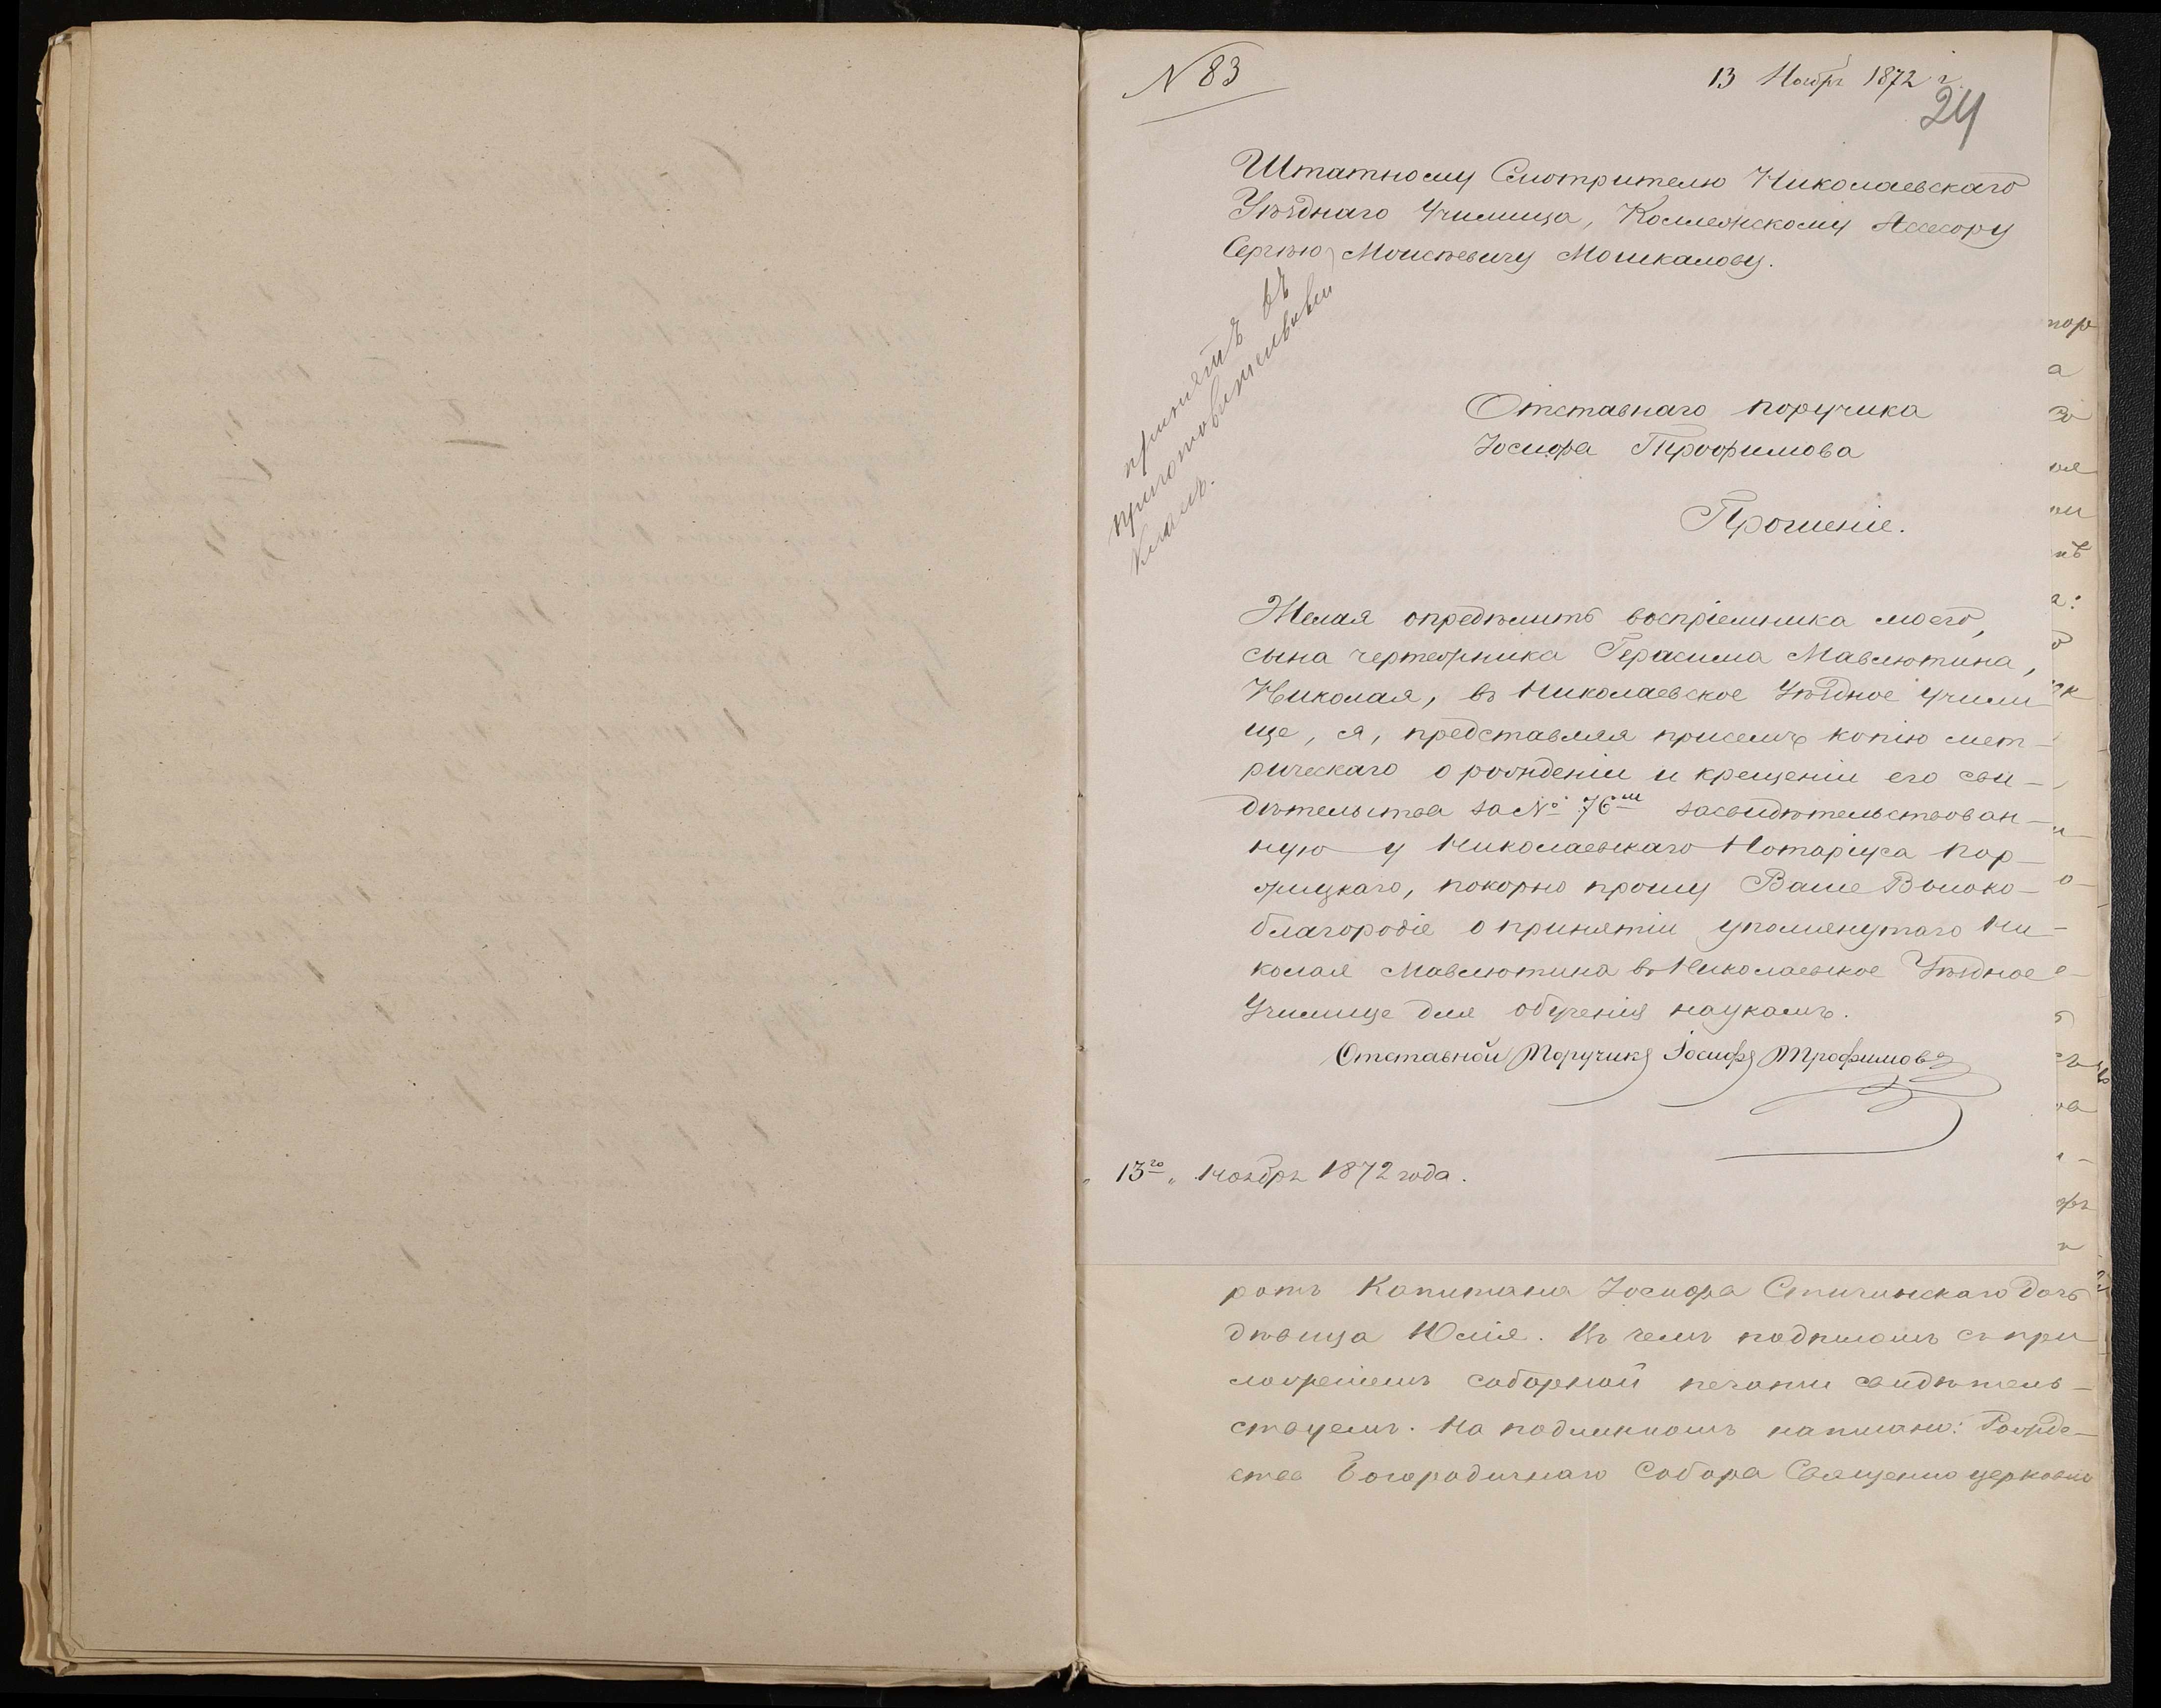 N 83
13 Ноябр 1872 г.
24
Штатному Смотрителю Николаевскаго
Уѣзднаго Училища, Коллежскому Ассесору
Сергѣю Моисѣевичу Мошкалову.
принять въ
приготовительный
классъ.
Отставнаго поручика
Іосифа Трофимова
Прошеніе.
Желая опредѣлить воспріемника моего,
сына чертежника Герасима Мавлютина,
Николая, въ Николаевское Уѣздное учили-
ще, я, представляя присемъ копію мет-
рическаго о рожденіи и крещеніи его сви-
дѣтельства за № 76 засвидѣтельствован-
ную у Николаевскаго Нотаріуса Пор-
жицкаго, покорно прошу Ваше Высоко-
благородіе о принятіи упомянутаго Ни-
колая Мавлютина въ Николаевское Уѣздное
Училище для обученія наукамъ.
Отставной Поручикъ Іосифъ Трофимовъ
„13го„ ноябрь 1872 года.
ротъ Капитана Іосифа Стичинскаго дочь
дѣвица Юлія. Въ чемъ подписомъ съ при
ложеніемъ соборной печати свидѣтель-
ствуемъ. На подлинномъ написано: Рожде-
ства Богородичнаго Собора Священно церковно